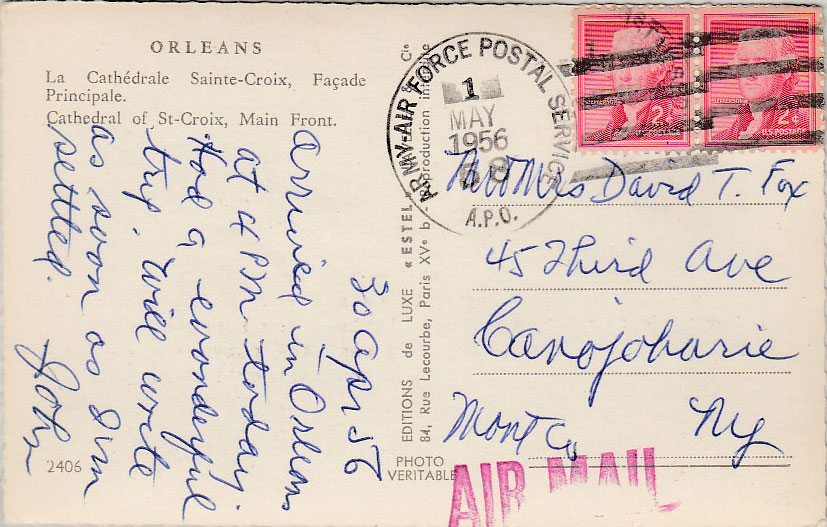 ORLEANS
La Cathédrale Sainte-Croix, Façade
Principale.
Cathedral of St-Croix, Main Front.
30 Apr 56
Arrived in Orleans
at 4 PM today.
Had a wonderful
trip. Will write
as soon as I'm
settled.
John
2406
EDITIONS de LUXE « ESTEL
84, Rue Lecourbe, Paris XVe
Reproduction
PHOTO
VERITABLE
ARMY-AIR FORCE POSTAL SERVICE
1
MAY
1956
A.P.O.
JEFFERSON
2¢
U.S. POSTAGE
JEFFERSON
2¢
U.S. POSTAGE
Mr & Mrs David T. Fox
45 Third Ave
Canojoharie
Mont Co NY
AIR MAIL